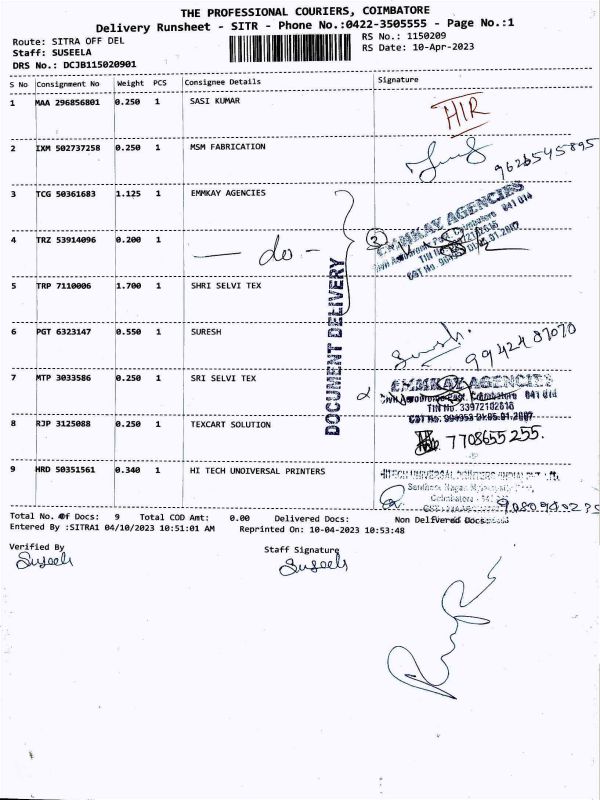 THE PROFESSIONAL COURIERS, COIMBATORE
Delivery Runsheet - SITR - Phone No.:0422-3505555 - Page No.:1
Route: SITRA OFF DEL
Staff: SUSEELA
DRS No.: DCJB115020901
RS No.: 1150209
RS Date: 10-Apr-2023
S No Consignment No Weight PCS Consignee Details Signature
1 MAA 296856801 0.250 1 SASI KUMAR
2 IXM 502737258 0.250 1 MSM FABRICATION 9626545895
3 TCG 50361683 1.125 1 EMMKAY AGENCIES
EMMKAY AGENCIES
4 TRZ 53914096 0.200 1 — do —
5 TRP 7110006 1.700 1 SHRI SELVI TEX
DOCUMENT DELIVERY
6 PGT 6323147 0.550 1 SURESH Suresh. 9942487070
7 MTP 3033586 0.250 1 SRI SELVI TEX
EMMKAY AGENCIES
Civil Aerodrome Post, Coimbatore 641 014
TIN No. 33972102616
CST No. 994953 Dt.05.01.2007
8 RJP 3125088 0.250 1 TEXCART SOLUTION 7708655255.
9 HRD 50351561 0.340 1 HI TECH UNOIVERSAL PRINTERS
Total No. Of Docs: 9 Total COD Amt: 0.00 Delivered Docs: Non Delivered Docs:
Entered By :SITRA1 04/10/2023 10:51:01 AM Reprinted On: 10-04-2023 10:53:48
Verified By Staff Signature
Suseela Suseela